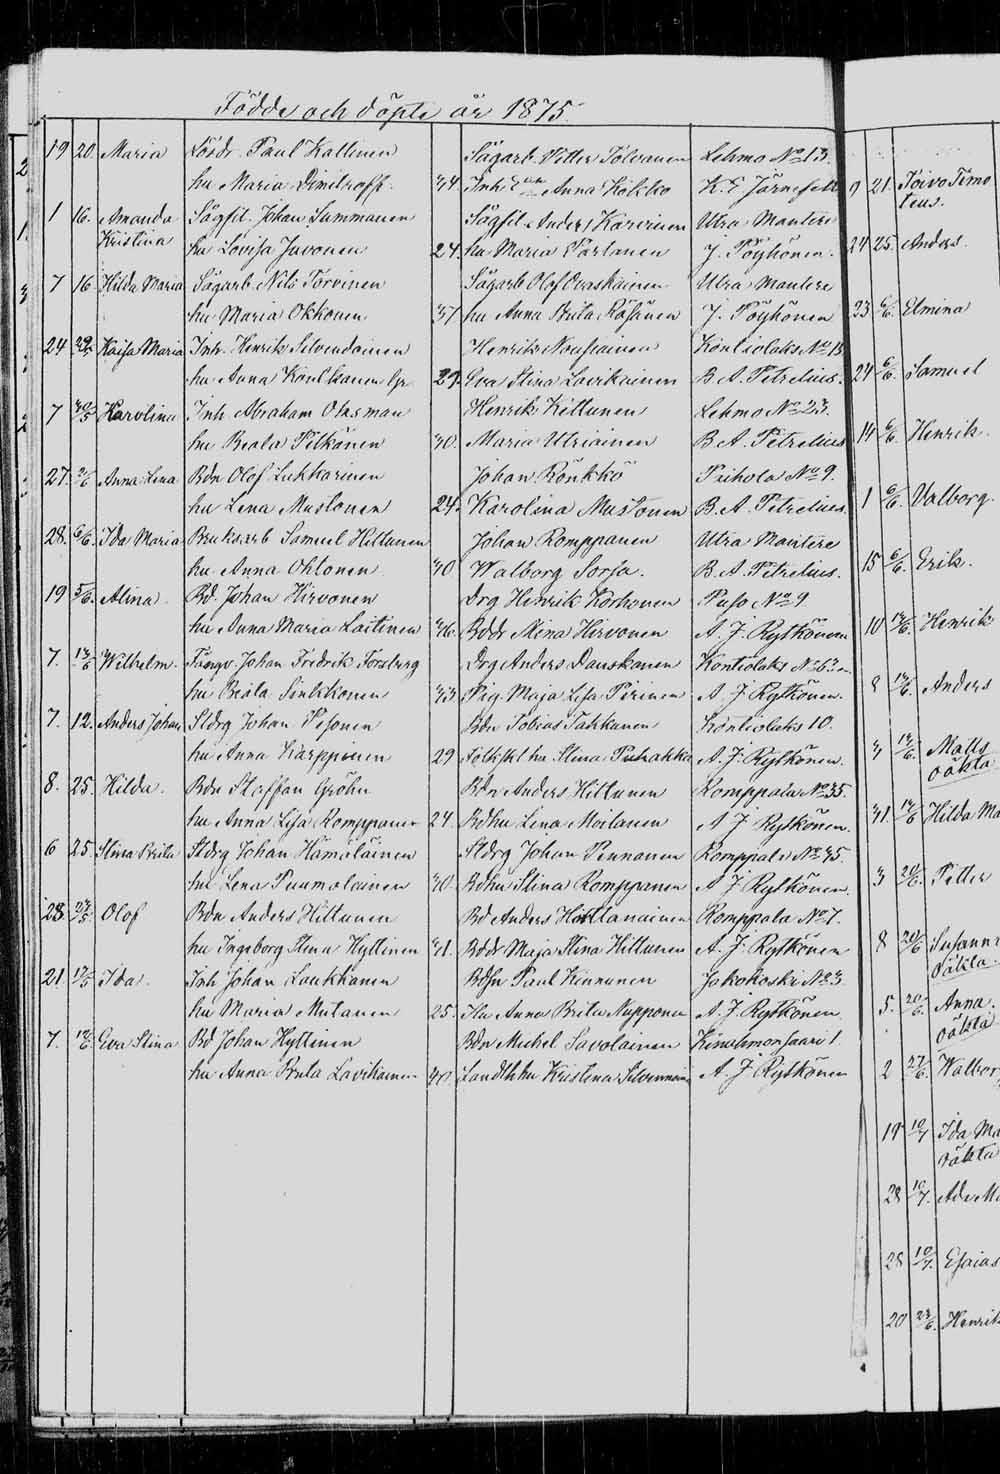 Födde och döpte år 1875.
19 20. Maria Lösdr. Paul Kallinen Sågarb. Petter Tolvanen Lehmo No 13.
hu Maria Dimitroff. 34. Inh Enk Anna Kokko K. E Järnefelt
1 16. Amanda Sågfil. Johan Summanen Sågfil. Anders Karvinen Utra Mantere
Kristina hu Lovisa Juvonen 24. hu Maria Partanen J. Pöyhönen.
7 16. Hilda Maria Sågarb. Nils Torvinen Sågarb Olof Ovaskainen Utra Mantere
hu Maria Okkonen 37 hu Anna Brita Räsänen J. Pöyhönen
24 Kaisa Maria Inh. Henrik Silvendoinen Henrik Nousiainen Kontiolaks No 13
hu Anna Konlkanen 29. Eva Stina Lavikainen B. A. Petrelius.
7 30/5 Karolina Inh Abraham Oksman Henrik Kettunen Lehmo No 23.
hu Beata Pitkänen 40. Maria Utriainen B A. Petrelius
27. 2/6 Anna Lena Bdn Olof Lukkarinen Johan Rönkkö Puhola No 9.
hu Lena Mustonen 24. Karolina Mustonen B. A. Petrelius.
28. 6/6. Ida Maria Bruksarb Samuel Hiltunen Johan Romppanen Utra Mantere
hu Anna Ohtonen 40 Walborg Sorsa. B. A. Petrelius.
19 5/6. Alina. Bd. Johan Hirvonen Drg Henrik Korhonen Puso No 9
hu Anna Maria Laitinen 36. Bddr Mina Hirvonen A. J. Rytkönen
7. 13/6 Wilhelm. Fångv. Johan Fredrik Forsberg Drg Anders Danskanen Kontiolaks No 63.
hu Beata Sinkkonen 33 Pig. Maja Lisa Pirinen A. J Rytkönen.
7. 12. Anders Johan Stdrg Johan Pesonen Bdn Tobias Takkunen Kontiolaks 10.
hu Anna Karppinen 29 Folksk hu Stina Puhakka A. J. Rytkönen.
8. 25. Hilda. Bdn Staffan Gröhn Bdn Anders Hiltunen Romppala No 35.
hu Anna Lisa Romppanen 24. Bdhu Lena Moilanen A J Rytkönen.
6 25 Stina Brita Stdrg Johan Hämäläinen Stdrg Johan Pennanen Romppala No 45.
hu Lena Puumalainen 30. Bdhu Stina Romppanen A J Rytkönen.
28 Olof Bdn Anders Hiltunen Bd Anders Romppala No 7.
hu Ingeborg Stina Hyttinen 41. Bddr Maja Stina Hiltunen A. J. Rytkönen
21. Ida. Inh Johan Laukkanen Bdsn Paul Kinnunen Jakokoski No 3.
hu Maria Mutanen 25. Anna Brita Nupponen A. J. Rytkönen
7. Eva Stina Bd Johan Hyttinen Bdn Michel Savolainen Kinahmonsaari 1.
hu Anna Brita Lavikainen 40. Landthhu Kristina Silvennoinen A. J Rytkönen
9 21. Toivo Timo
teus.
24 25. Anders.
23 6/6. Elmina
24 6/6. Samuel
14 6/6. Henrik.
1 6/6. Valborg.
15 6/6. Erik.
10 13/6. Henrik
8 13/6. Anders
3 13/6. Matts
oäkta
31. 13/6 Hilda Ma
3 20/6. Petter
8 20/6 Susanna
oäkta.
5. 20/6. Anna.
oäkta
2 27/6. Walbor
19 10/7 Ida Ma
oäkta
28 10/7. Ada M
28 10/7. Esaias
20 23/6. Henrik